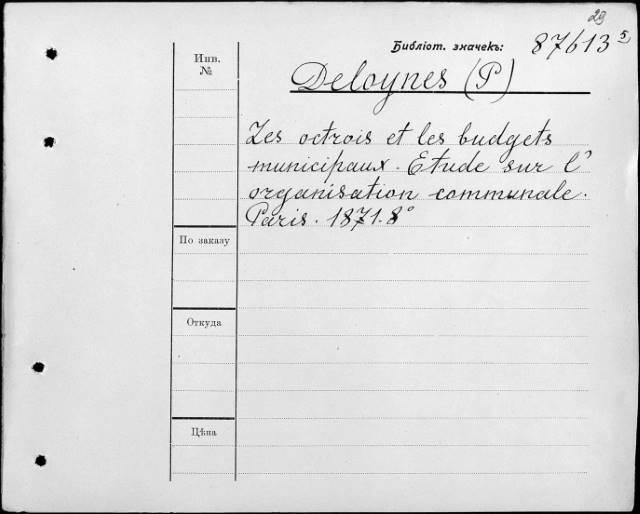 29
Библіот. значекъ: 87613⁵
Инв.
№
Deloynes (P)
Les octrois et les budgets
municipaux. Etude sur l'
organisation communale.
Paris. 1871. 8°
По заказу
Откуда
Цѣна